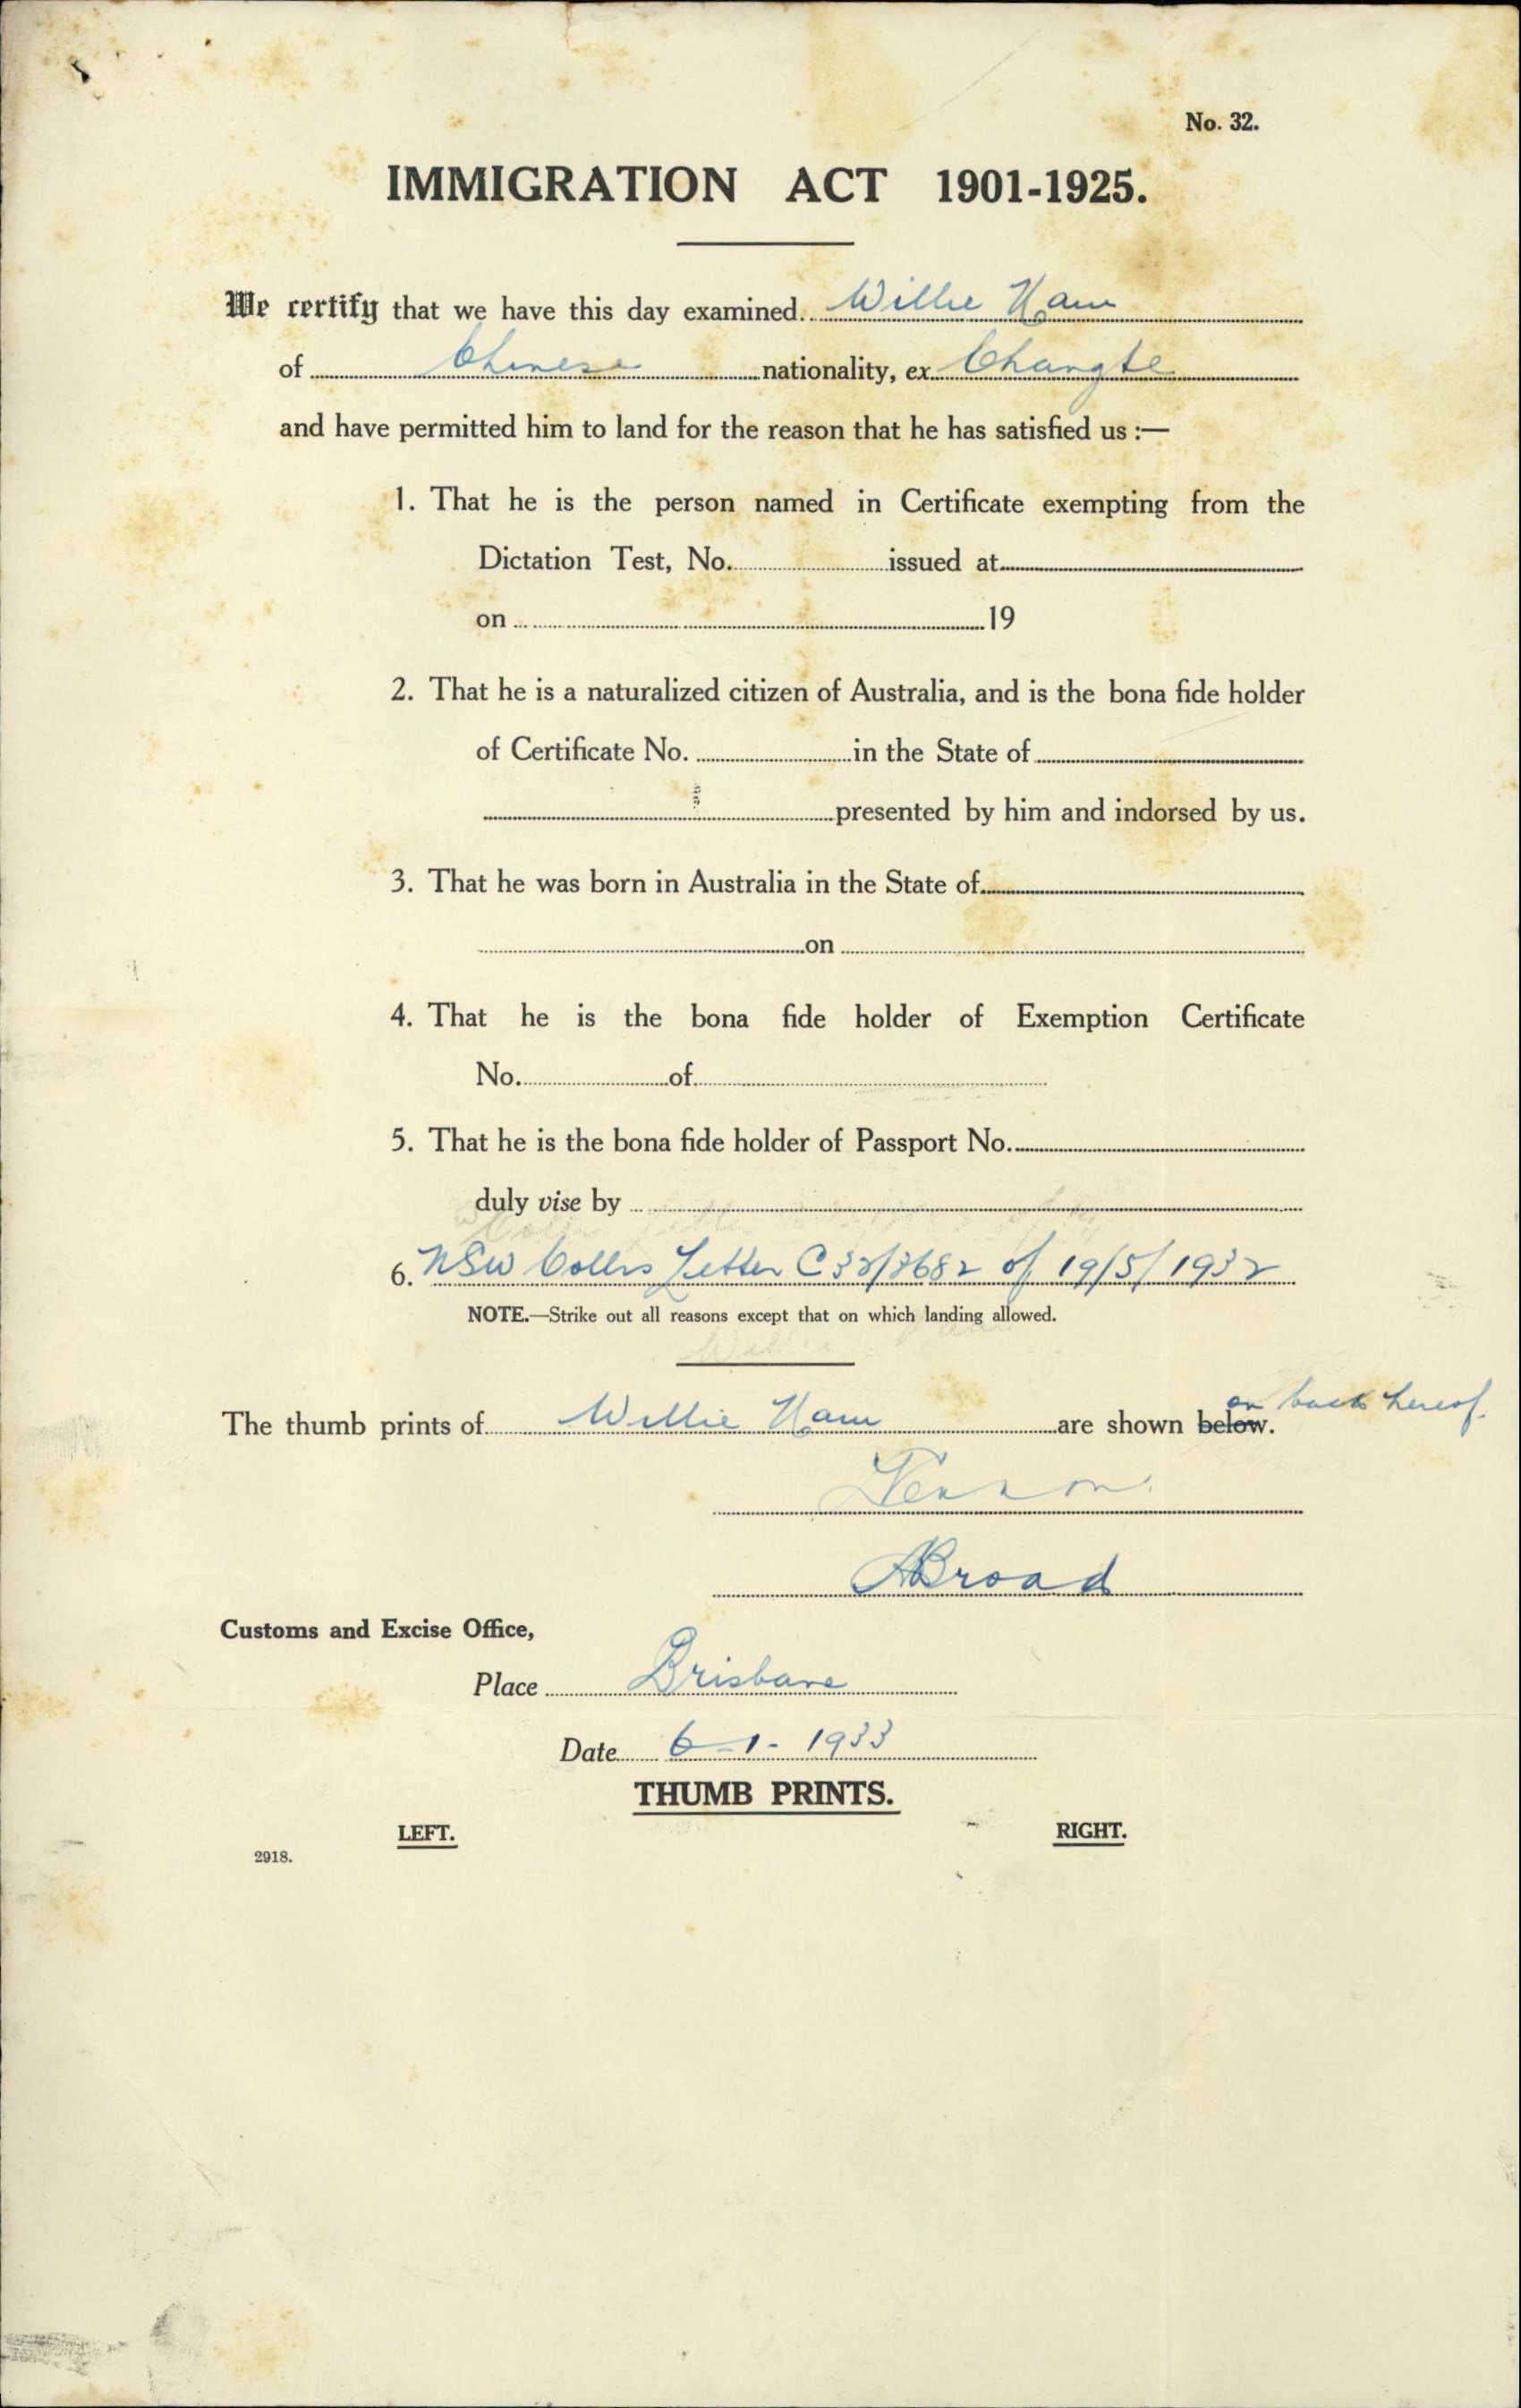 No. 32.
IMMIGRATION ACT 1901-1925.
We certify that we have this day examined Willie Ham
of Chinese nationality, ex Changte
and have permitted him to land for the reason that he has satisfied us :—
1. That he is the person named in Certificate exempting from the
Dictation Test, No. issued at
on 19
2. That he is a naturalized citizen of Australia, and is the bona fide holder
of Certificate No. in the State of
presented by him and indorsed by us.
3. That he was born in Australia in the State of
on
4. That he is the bona fide holder of Exemption Certificate
No. of
5. That he is the bona fide holder of Passport No.
duly vise by
6. NSW Collrs Letter C32/3682 of 19/5/1932
NOTE.—Strike out all reasons except that on which landing allowed.
on back hereof.
The thumb prints of Willie Ham are shown below.
ABroad
Customs and Excise Office,
Place Brisbane
Date 6-1-1933
THUMB PRINTS.
LEFT. RIGHT.
2918.